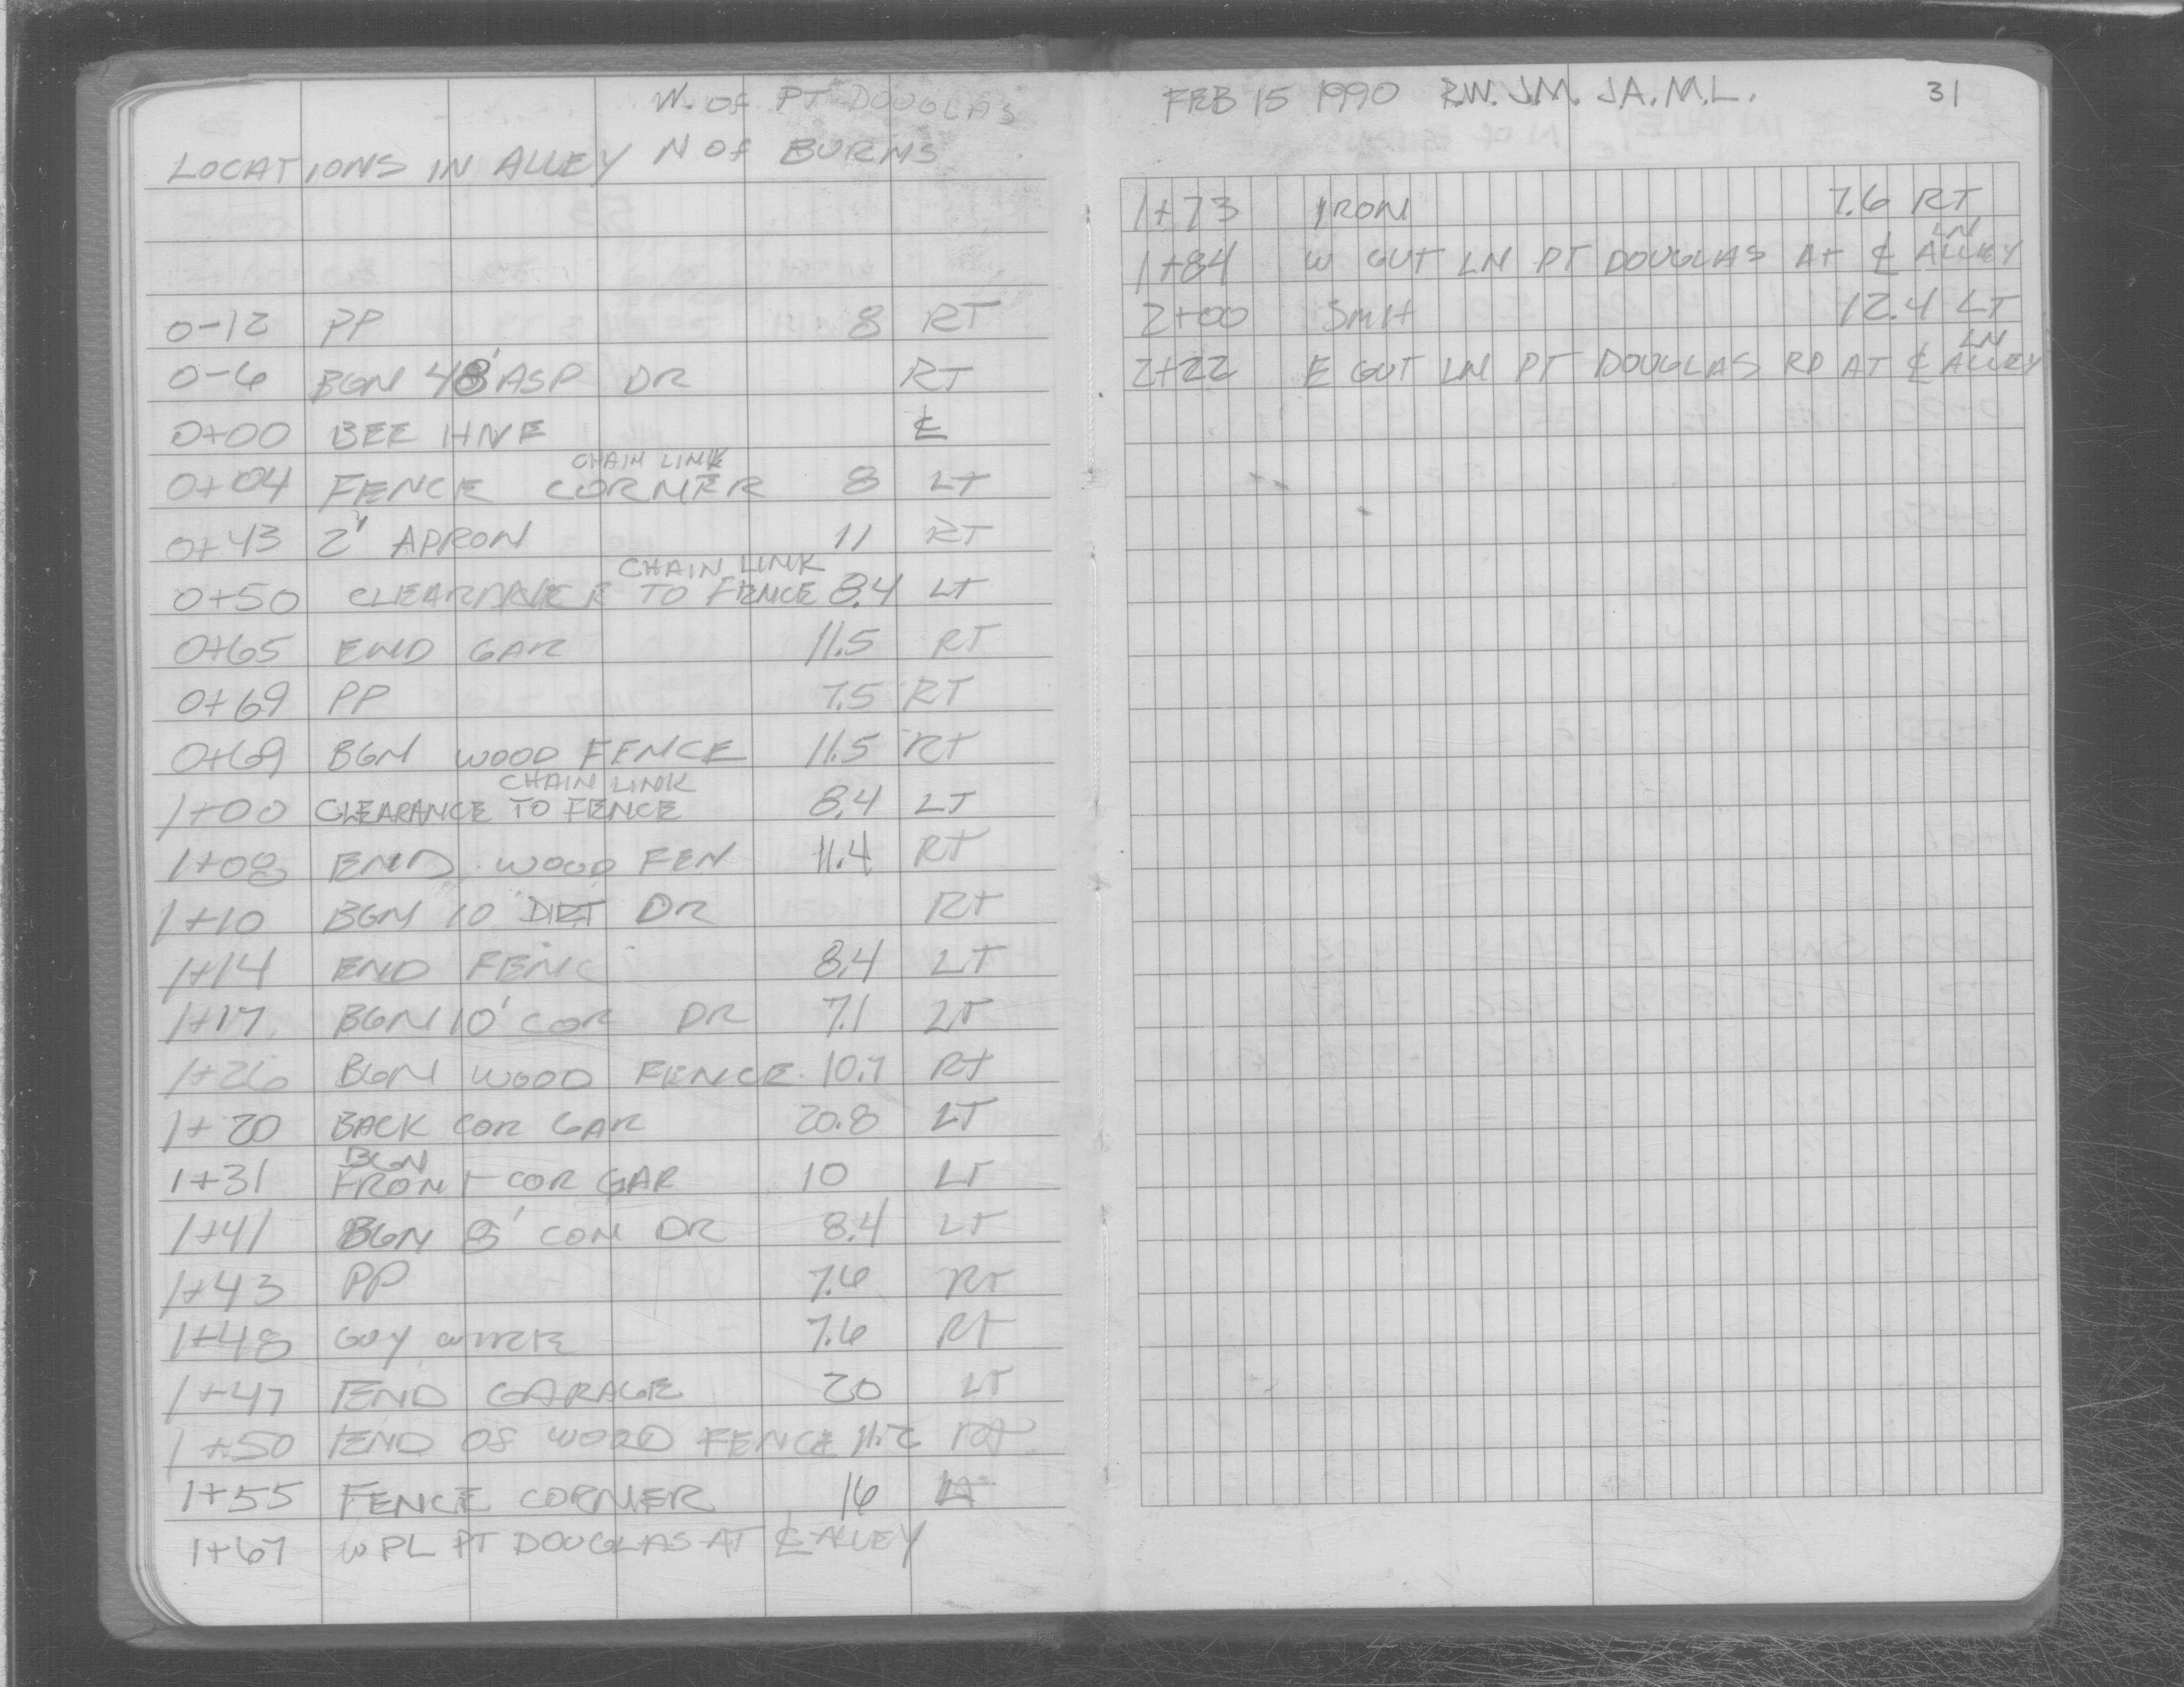 W. OF PT DOUGLAS
LOCATIONS IN ALLEY N OF BURNS
0-12 PP 8 RT
0-6 BGN 48' ASP DR RT
0+00 BEE HIVE ℄
CHAIN LINK
0+04 FENCE CORNER 8 LT
0+43 2' APRON 11 RT
CHAIN LINK
0+50 CLEARANCE TO FENCE 8.4 LT
0+65 END GAR 11.5 RT
0+69 PP 7.5 RT
0+69 BGN WOOD FENCE 11.5 RT
CHAIN LINK
1+00 CLEARANCE TO FENCE 8.4 LT
1+08 END WOOD FEN 11.4 RT
1+10 BGN 10 DIRT DR RT
1+14 END FENC 8.4 LT
1+17 BGN 10' COR DR 7.1 LT
1+26 BGN WOOD FENCE 10.7 RT
1+20 BACK COR GAR 20.8 LT
BGN
1+31 FRONT COR GAR 10 LT
1+41 BGN 8' CON DR 8.4 LT
1+43 PP 7.6 RT
1+48 GUY WIRE 7.6 RT
1+47 END GARAGE 20 LT
1+50 END OF WOOD FENCE 11.2 RT
1+55 FENCE CORNER 16 LT
1+67 W PL PT DOUGLAS AT ℄ ALLEY
FEB 15 1990 R.W. J.M. J.A. M.L. 31
1+73 IRON 7.6 RT
LN
1+84 W GUT LN PT DOUGLAS AT ℄ ALLEY
2+00 SMH 12.4 LT
LN
2+22 E GUT LN PT DOUGLAS RD AT ℄ ALLEY